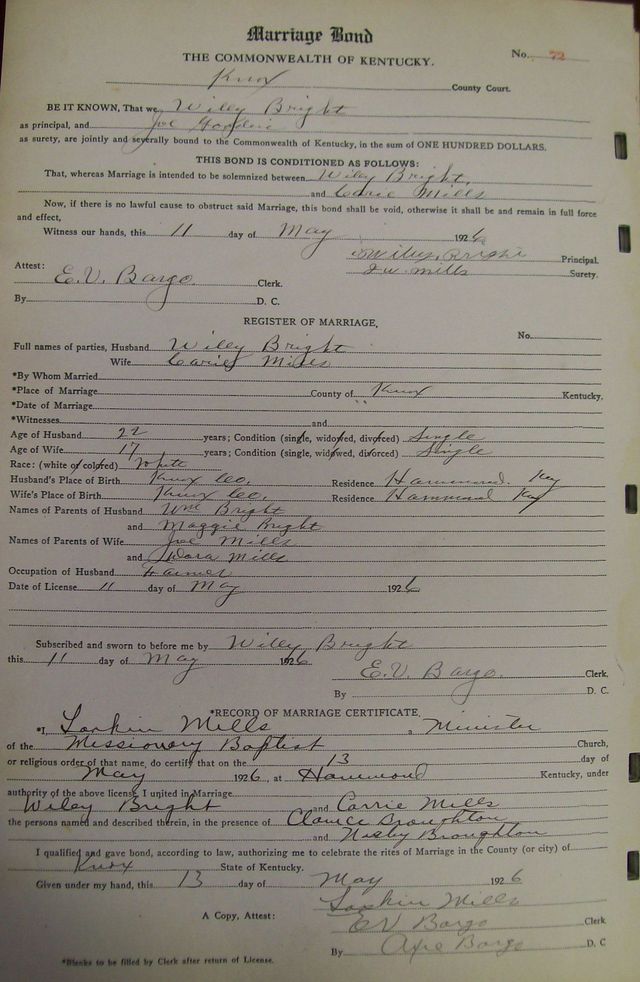 Marriage Bond
THE COMMONWEALTH OF KENTUCKY.
No. 72
Knox County Court.
BE IT KNOWN, That we, Wiley Bright
as principal, and Joe
as surety, are jointly and severally bound to the Commonwealth of Kentucky, in the sum of ONE HUNDRED DOLLARS.
THIS BOND IS CONDITIONED AS FOLLOWS:
That, whereas Marriage is intended to be solemnized between Wiley Bright,
and Carie Mills
Now, if there is no lawful cause to obstruct said Marriage, this bond shall be void, otherwise it shall be and remain in full force
and effect,
Witness our hands, this 11 day of May 1926
Wiley Bright Principal.
Attest: J W Mills Surety.
E. V. Bargo Clerk.
By D. C.
REGISTER OF MARRIAGE,
No.
Full names of parties, Husband Wiley Bright
Wife Carie Mills
*By Whom Married
*Place of Marriage County of Knox Kentucky.
*Date of Marriage
*Witnesses and
Age of Husband 22 years; Condition (single, widowed, divorced) Single
Age of Wife 17 years; Condition (single, widowed, divorced) Single
Race: (white or colored) White
Husband's Place of Birth Knox Co. Residence Hammond. Ky
Wife's Place of Birth Knox Co. Residence Hammond Ky
Names of Parents of Husband Wm Bright
and Maggie Bright
Names of Parents of Wife Joe Mills
and Dora Mills
Occupation of Husband Farmer
Date of License 11 day of May 1926
Subscribed and sworn to before me by Wiley Bright
this 11 day of May 1926
E. V. Bargo. Clerk.
By D. C.
*RECORD OF MARRIAGE CERTIFICATE,
*I, Larkin Mills, a Minister
of the Missionary Baptist Church,
or religious order of that name, do certify that on the 13 day of
May 1926, at Hammond Kentucky, under
authority of the above license, I united in Marriage
Wiley Bright and Carrie Mills
the persons named and described therein, in the presence of Broughton
and Broughton
I qualified and gave bond, according to law, authorizing me to celebrate the rites of Marriage in the County (or city) of
Knox State of Kentucky.
Given under my hand, this 13 day of May 1926
Larkin Mills
A Copy, Attest: EV Bargo Clerk
By Bargo D. C
*Blanks to be filled by Clerk after return of License.